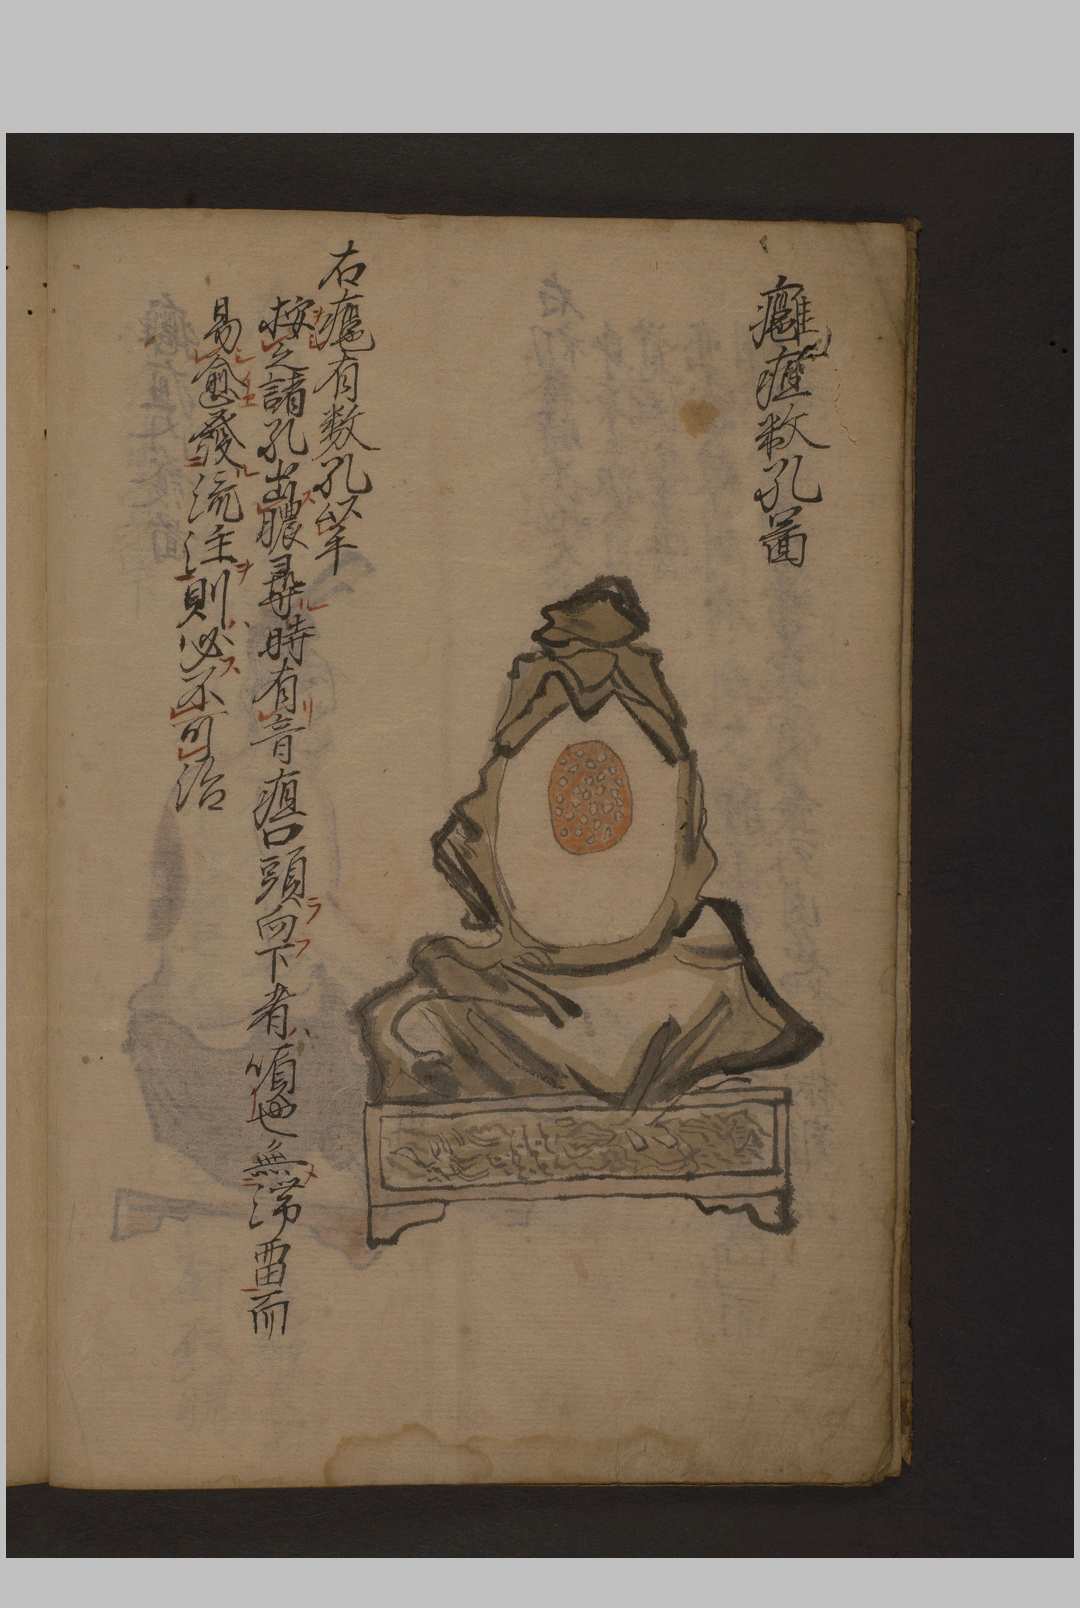 癰疽数孔啚
右癰有数孔以手
按之諸孔出膿尋時有音疽口頭向下者順也無滞畱而
易愈發流注則必不可治